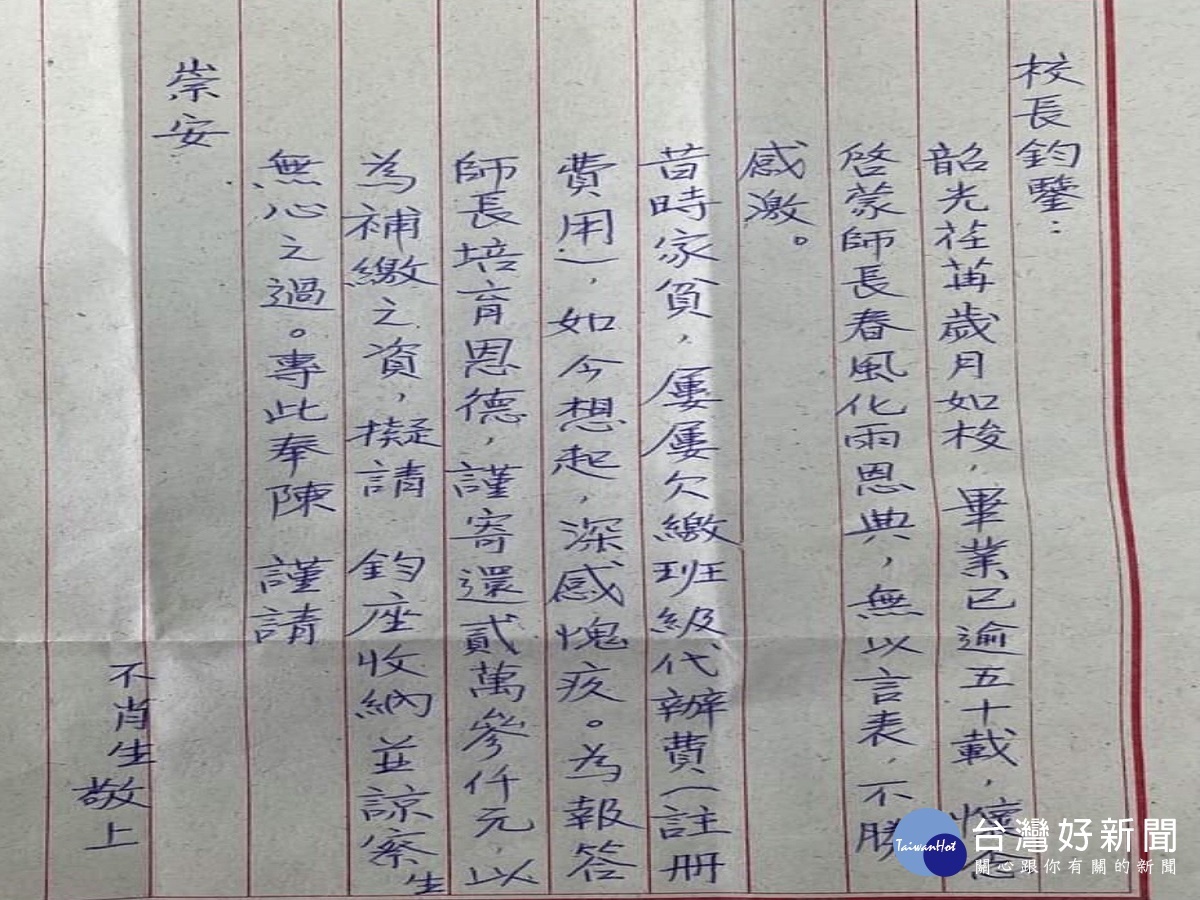 校長鈞鑒：
韶光荏苒歲月如梭，畢業已逾五十載，懷念
啓蒙師長春風化雨恩典，無以言表，不勝
感激。
昔時家貧，屢屢欠繳班級代辦費（註冊
費用），如今想起，深感愧疚。為報答
師長培育恩德，謹寄還貳萬參仟元，以
為補繳之資，擬請 鈞座收納並諒察生
無心之過。專此奉陳 謹請
崇安
不肖生
敬上
TaiwanHot
台灣好新聞
關心跟你有關的新聞